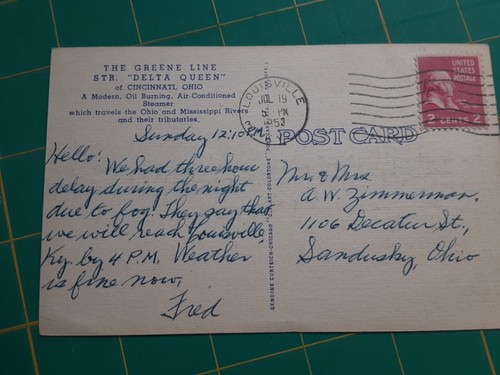 THE GREENE LINE
STR. "DELTA QUEEN"
of CINCINNATI, OHIO
A Modern, Oil Burning, Air-Conditioned
Steamer
which travels the Ohio and Mississippi Rivers
and their tributaries.
Sunday 12:10 P.M.
Hello!
We had three hour
delay during the night
due to fog. They say that
we will reach Louisville,
Ky. by 4 P.M. Weather
is fine now.
Fred
GENUINE CURTEICH-CHICAGO "C.T. ART-COLORTONE"
LOUISVILLE
JUL 19
PM
1953
UNITED
STATES
POSTAGE
2 CENTS 2
POST CARD
Mr & Mrs
A. W. Zimmerman,
1106 Decatur St.,
Sandusky, Ohio